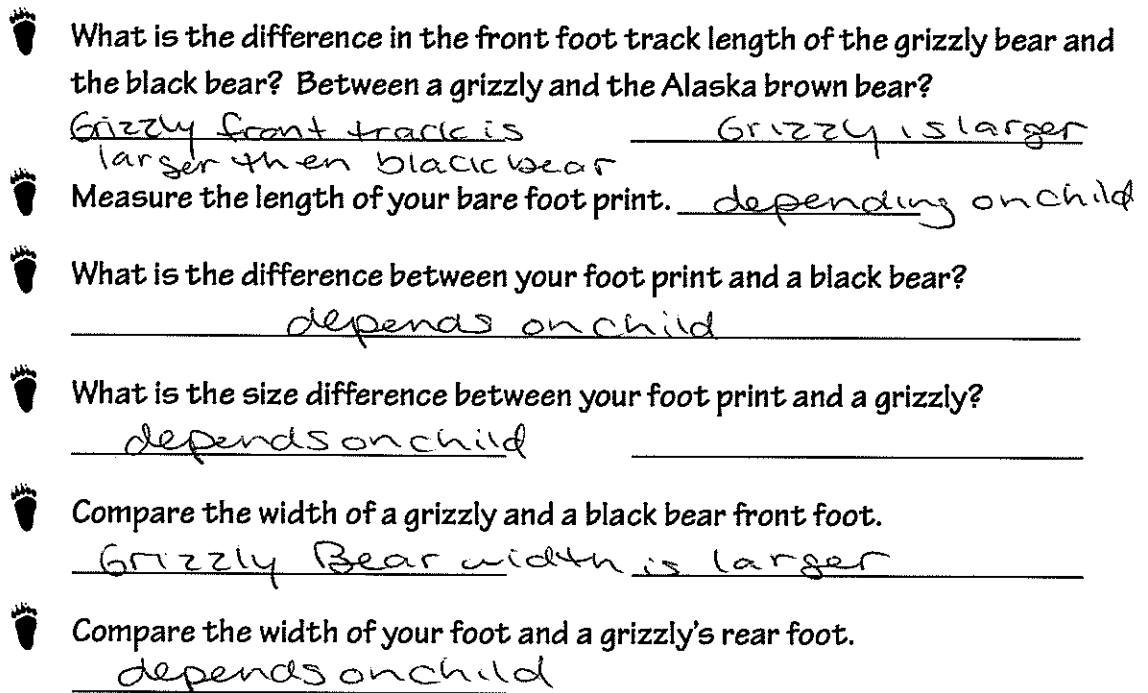 What is the difference in the front foot track length of the grizzly bear and
the black bear? Between a grizzly and the Alaska brown bear?
Grizzly front track is Grizzly is larger
larger then black bear
Measure the length of your bare foot print. depending on child
What is the difference between your foot print and a black bear?
depends on child
What is the size difference between your foot print and a grizzly?
depends on child
Compare the width of a grizzly and a black bear front foot.
Grizzly Bear width is larger
Compare the width of your foot and a grizzly's rear foot.
depends on child